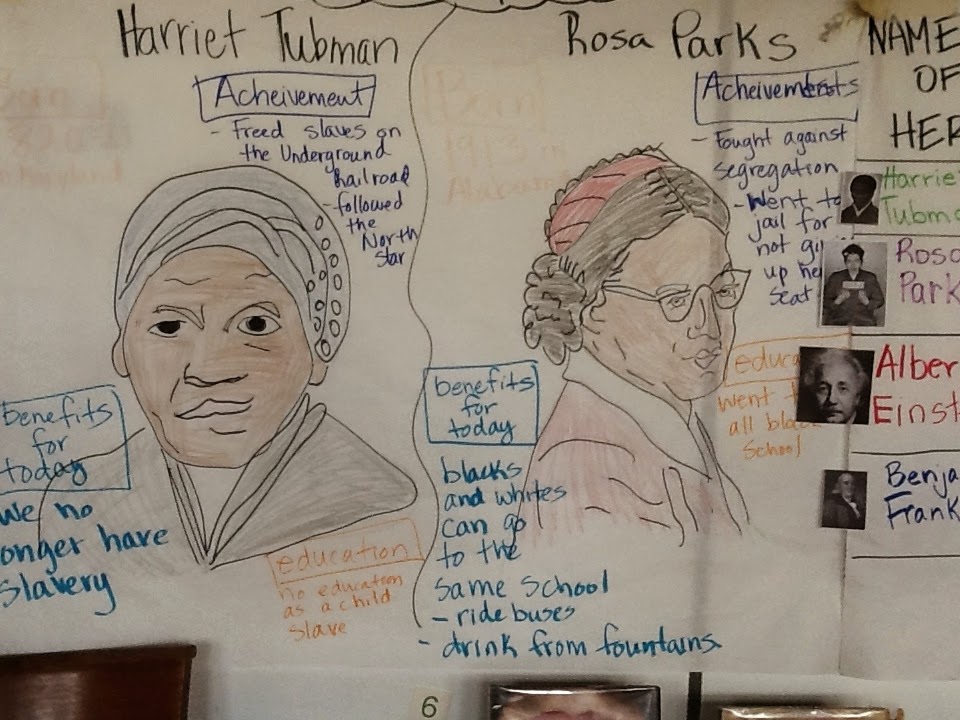 Harriet Tubman
Acheivement
- Freed slaves on
the Underground
Railroad
- followed
the
North
Star
benefits
for
today
we no
onger have
slavery
education
no education
as a child
slave
Rosa Parks
Acheivements
- Fought against
segregation
- Went to
jail for
not gi
up he
seat
Born
1913 in
Alabama
benefits
for
today
blacks
and whites
can go
to the
same school
- ride buses
- drink from fountains
educa
went t
all bla
school
NAME
OF
HER
Harrie
Tubm
Rosa
Park
Alber
Einst
Benja
Frank
6